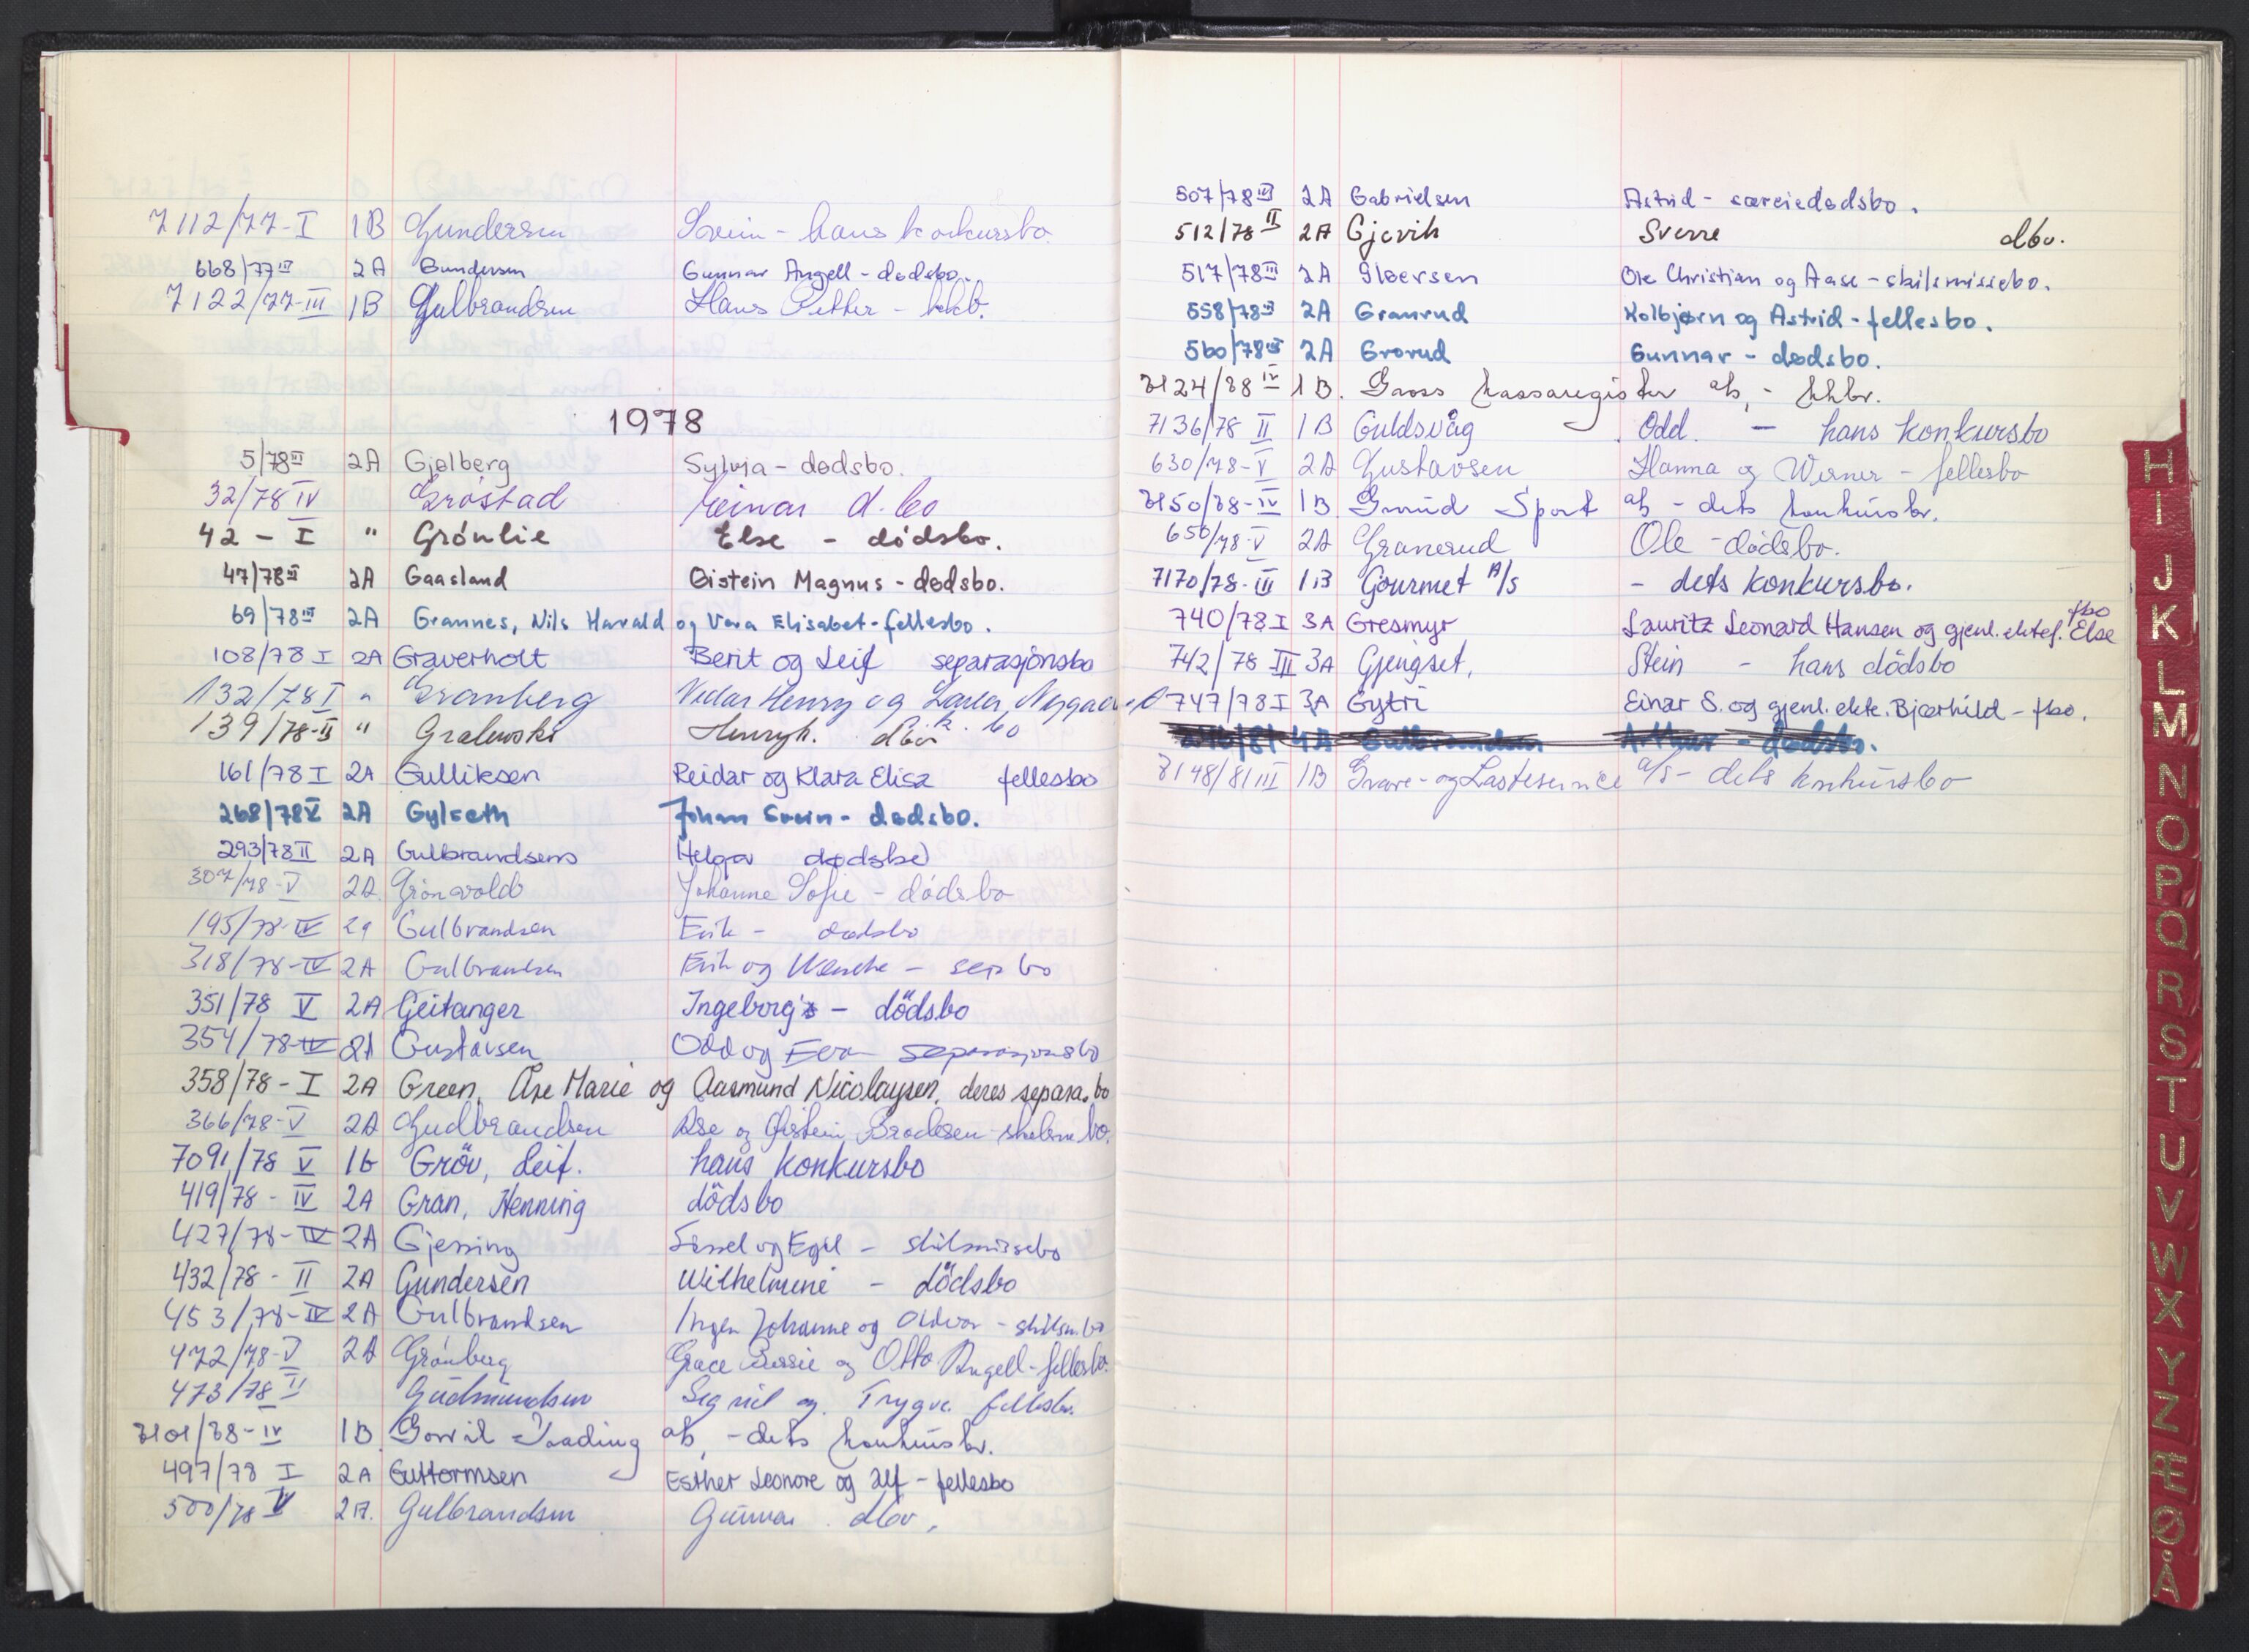 7112/77-I 1B Gundersen Svein - hans konkursbo.
668/77 III 2A Gundersen Gunnar Angell - dødsbo.
7122/77-III 1B Gulbrandsen Hans Petter - kkb.
1978
5/78 III 2A Gjølberg Sylvia - dødsbo.
32/78 IV Gröstad Einar d.bo
42 - I " Grönlie Else - dödsbo.
47/78 III 2A Gaasland Øistein Magnus - dødsbo.
69/78 III 2A Grannes, Nils Harald og Vera Elisabet - fellesbo.
108/78 I 2A Graverholt Berit og Leif separasjonsbo
132/78 I " Granberg Vidar Henry og Laila Nygaard
139/78-II " Gralewski Henryk. dbo
161/78 I 2A Gulliksen Reidar og Klara Elisa fellesbo
268/78 V 2A Gylseth Johan Svein - dødsbo.
293/78 II 2A Gulbrandsens Helga dødsbo
307/78-V 2A Grönvold Johanne Sofie - dödsbo
195/78-IV 2A Gulbrandsen Erik - dødsbo
318/78-IV 2A Gulbrandsen Erik og Wenche - sep bo
351/78 V 2A Geitanger Ingeborg's - dödsbo
354/78-IV 2A Gustavsen Odd og Eva separasjonsbo
358/78-I 2A Green, Åse Marie og Aasmund Nicolaysen, deres separa.bo
366/78-V 2A Gudbrandsen Åse og Øistein Brodesen - skilsm.bo.
7091/78 V 1b Gröv, Leif. hans konkursbo
419/78-IV 2A Gran, Henning dödsbo
427/78-IV 2A Gjessing Sissel og Egil - skilsmissebo
432/78-II 2A Gundersen Wilhelmine - dödsbo
453/78-IV 2A Gulbrandsen Inger Johanne og Oddvar - skilsm.bo
472/78-V 2A Grönberg Grace Bessie og Otto Angell - fellesbo.
473/78 II Gudmundsen Sigrid og Trygve fellesbo.
7101/78-IV 1B Gorril Trading a/s, - dets konkursbo.
497/78 I 2A Guttormsen Esther Leonore og Alf - fellesbo
500/78 V 2A. Gulbrandsen Gunnar dbo.
507/78 III 2A Gabrielsen Astrid - særeiedødsbo.
512/78 II 2A Gjervik Sverre dbo.
517/78 III 2A Gloersen Ole Christian og Aase - skilsmissebo.
558/78 III 2A Granrud Kolbjørn og Astrid - fellesbo.
560/78 III 2A Grorud Gunnar - dødsbo.
7124/78 IV 1B. Gross kassaregister a/s, - kkbo.
7136/78 II 1B Guldsvåg Odd. - hans konkursbo
630/78-V 2A Gustavsen Hanna og Werner - fellesbo
7150/78-IV 1B Grorud Sport a/s - dets konkursbo.
650/78-V 2A Granerud Ole - dödsbo.
7170/78-III 1B Gourmet A/S - dets konkursbo.
740/78 I 3A Gresmyr Lauritz Leonard Hansen og gjenl. ektef. Else fbo
742/78 III 3A Gjengset, Stein - hans dödsbo
747/78 I 3A Gytri Einar S. og gjenl. ekte. Bjørhild - fbo.
7148/81 III 1B Grave- og Lasteservice a/s - dets konkursbo
H
I
J
K
L
M
N
O
P
Q
R
S
T
U
V
W
X
Y
Z
Æ
Ø
Å